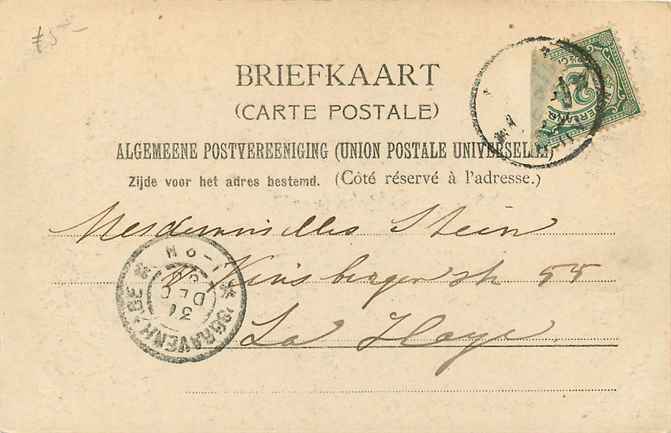 £5-
BRIEFKAART
(CARTE POSTALE)
ALGEMEENE POSTVEREENIGING (UNION POSTALE UNIVERSELLE)
Zijde voor het adres bestemd. (Côté réservé à l'adresse.)
Mesdemoiselles Stein
v. Kinsbergenstr 55
La Haye
'SGRAVENH
31
DEC
2½